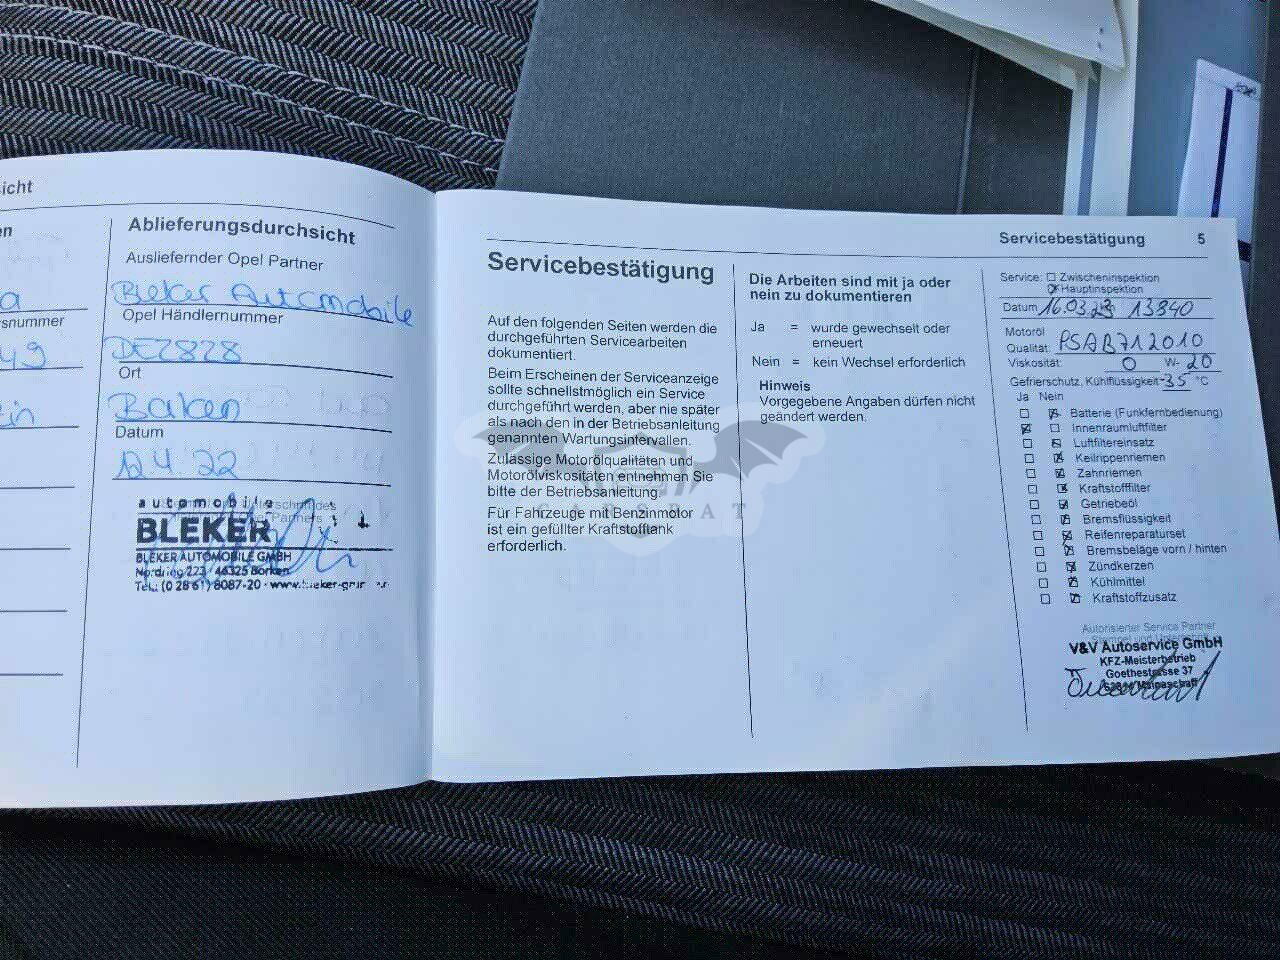 sicht
en
a
rsnummer
49
ein
Ablieferungsdurchsicht
Ausliefernder Opel Partner
Bleker Automobile
Opel Händlernummer
DEZ828
Ort
Borken
Datum
12 4 22
automobile
BLEKER
BLEKER AUTOMOBILE GMBH
Nordring 223 / 46325 Borken
Tel.: (0 28 61) 8087-20 · www.bleker-gruppe
Servicebestätigung
Auf den folgenden Seiten werden die
durchgeführten Servicearbeiten
dokumentiert.
Beim Erscheinen der Serviceanzeige
sollte schnellstmöglich ein Service
durchgeführt werden, aber nie später
als nach den in der Betriebsanleitung
genannten Wartungsintervallen.
Zulässige Motorölqualitäten und
Motorölviskositäten entnehmen Sie
bitte der Betriebsanleitung.
Für Fahrzeuge mit Benzinmotor
ist ein gefüllter Kraftstofftank
erforderlich.
Die Arbeiten sind mit ja oder
nein zu dokumentieren
Ja = wurde gewechselt oder
erneuert
Nein = kein Wechsel erforderlich
Hinweis
Vorgegebene Angaben dürfen nicht
geändert werden.
Servicebestätigung 5
Service: Zwischeninspektion
Hauptinspektion
Datum 16.03.23 13840
Motoröl
Qualität: PSAB712010
Viskosität: 0 W- 20
Gefrierschutz, Kühlflüssigkeit -35 °C
Ja Nein
Batterie (Funkfernbedienung)
Innenraumluftfilter
Luftfiltereinsatz
Keilrippenriemen
Zahnriemen
Kraftstofffilter
Getriebeöl
Bremsflüssigkeit
Reifenreparaturset
Bremsbeläge vorn / hinten
Zündkerzen
Kühlmittel
Kraftstoffzusatz
Autorisierter Service Partner
V&V Autoservice GmbH
KFZ-Meisterbetrieb
Goethestrasse 37
Mainaschaff